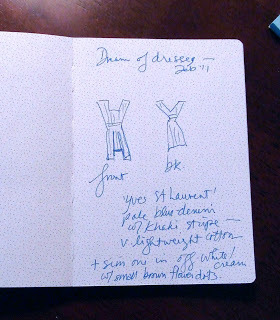 Dream of dresses —
Feb '11
front
bk.
Yves St Laurent!
pale blue denim
w/ khaki stripe —
v. lightweight cotton
+ sim one in off-white/
cream
w/ small brown flower dots.